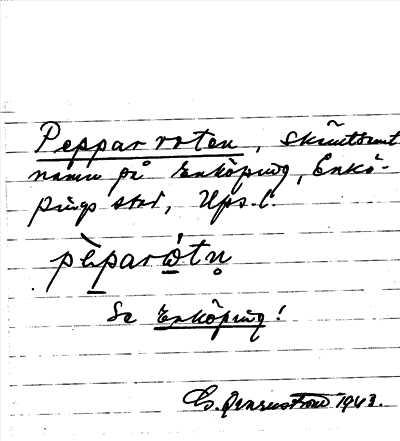 Pepparroten, skämtsamt
namn på Enköping, Enkö-
pings stad, Ups. l.
pὲparὼtn̥
Se Enköping!
1943.